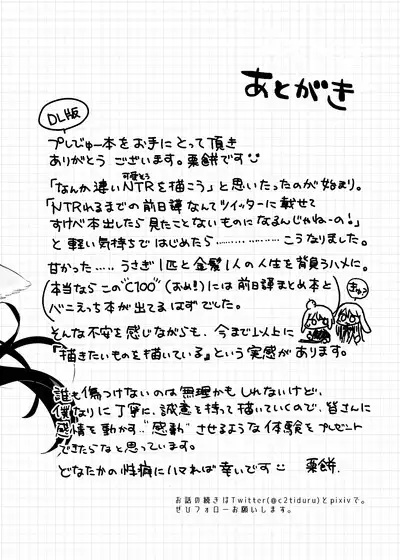 あとがき
DL版
プレびゅー本をお手にとって頂き
ありがとう ございます。薬餅です
「なんか凄いNTRを描こう」と思いたったのが始まり。
可愛そう
「NTRれるまでの前日譚なんてツイッターに載せて
すけべ本出したら見たことないものになるんじゃねーの!」
と軽い気持ちではじめたら……………………こうなりました。
甘かった…..うさぎ1匹と金髪1人の人生を背負うハメに。
本当なら この"C100"(おめ!)には前日譚まとめ本と
ベニえっち本が出てるはずでした。
きゅっ
そんな不安を感じながらも、今まで1人以上に
『描きたいものを描いている』という実感が あります。
誰も傷つけないのは無理かもしれないけど、
僕なりに丁寧に、誠意を持って描いていくので、皆さんに
感情を動かす"感動"させるような体験をプレゼント
できたらなと思っています。
どなたかの性癖にハマれば幸いです 薬餅.
お話の続きはTwitter(@c2tiduru)とpixivで。
ぜひフォローお願いします。